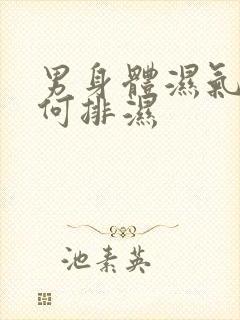 男身體濕氣
何排濕
池素英